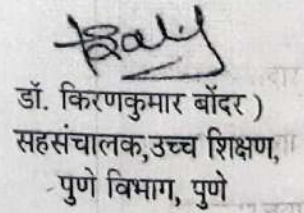 डॉ. किरणकुमार बोंदर )
सहसंचालक,उच्च शिक्षण,
पुणे विभाग, पुणे